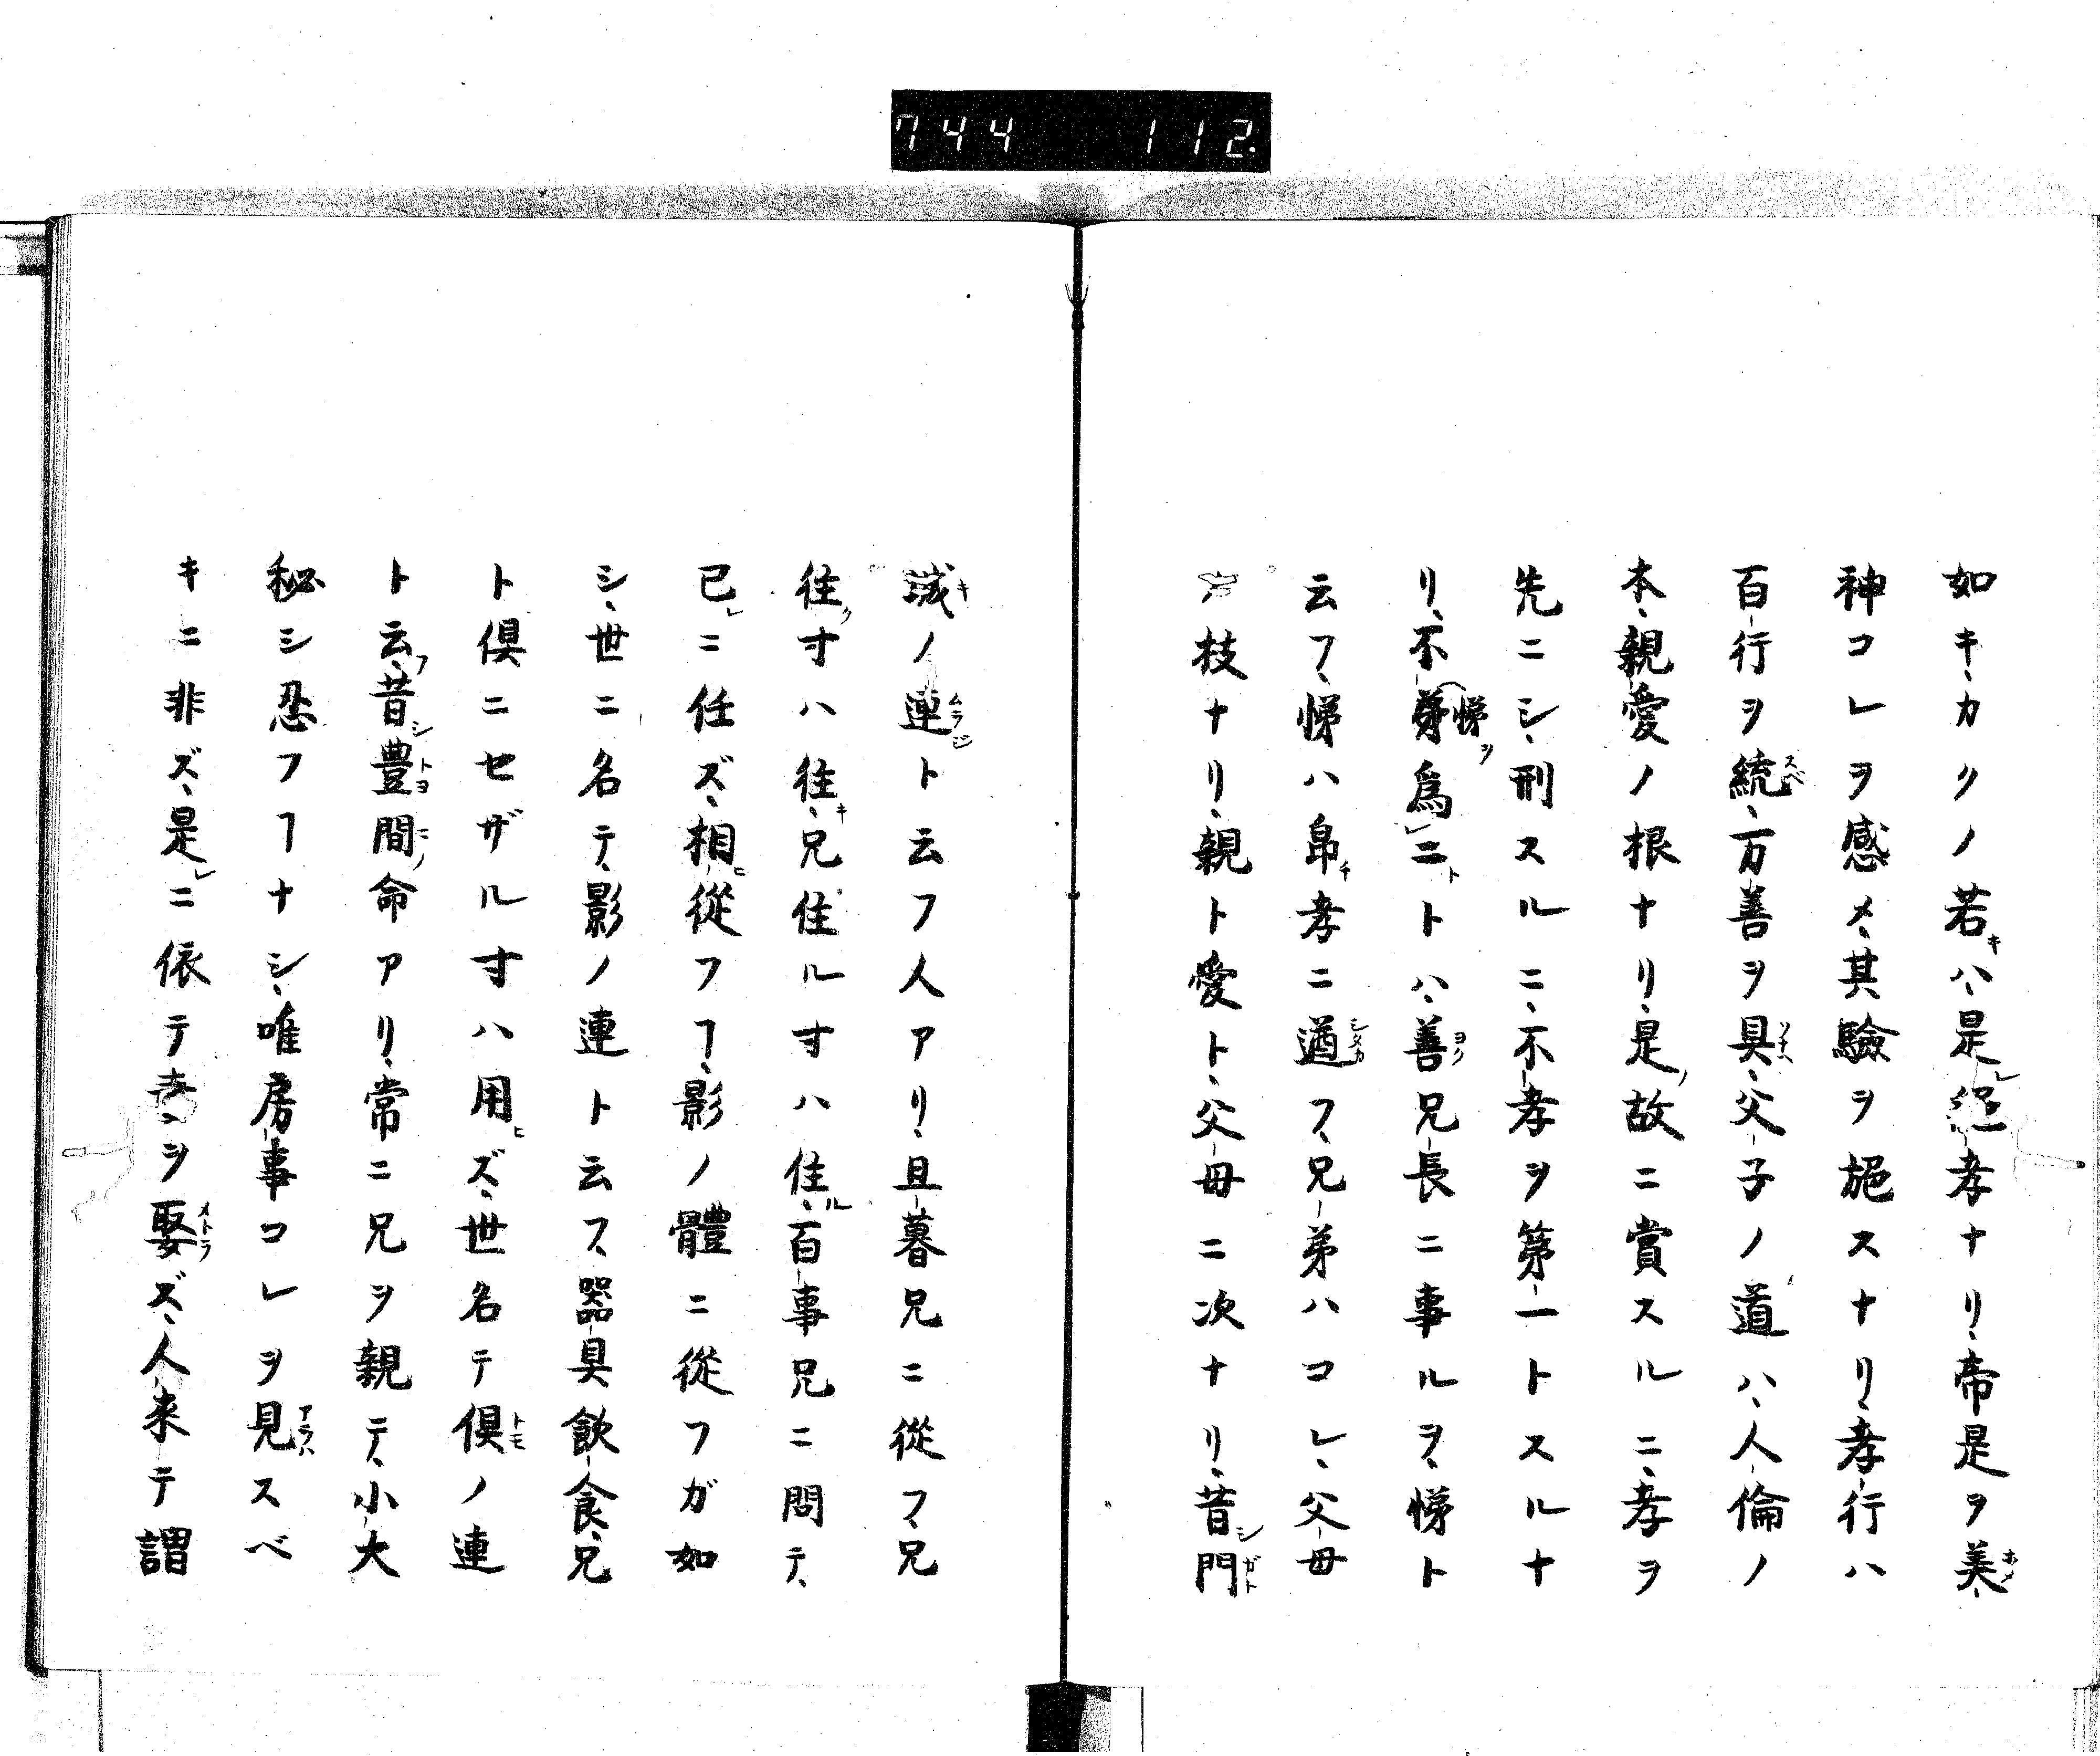 744 112.
如キ、カクノ若キハ、是レ 孝ナリ、帝是ヲ美、
神コレヲ感メ、其驗ヲ施スナリ、孝行ハ
百行ヲ統、万善ヲ具、父子ノ道ハ、人倫ノ
本、親愛ノ根ナリ、是ノ故ニ賞スルニ、孝ヲ
先ニシ、刑スルニ、不孝ヲ第一トスルナ
リ、不悌ヲ爲ニトトハ、善兄長ニ事ルヲ、悌ト
云フ、悌ハ帛チ孝ニ遒フ、兄弟ハコレ、父母
ノ枝ナリ、親ト愛ト、父母ニ次ナリ、昔シ門
キノ連ト云フ人アリ、且暮兄ニ從フ、兄
往ク寸ハ往キ、兄住ル寸ハ住ル、百事兄ニ問テ、
已レニ任ズ、相ヒ從フヿ、影ノ體ニ從フガ如
シ、世ニ名テ、影ノ連ト云フ、器具飲食、兄
ト倶ニセザル寸ハ用ヒズ、世名テ倶ノ連
ト云フ、昔シ豊間ノ命アリ、常ニ兄ヲ親テ、小大
秘シ忍フヿナシ、唯房事コレヲ見スベ
キニ非ズ、是レニ依テ妻ヲ娶ズ、人来テ謂